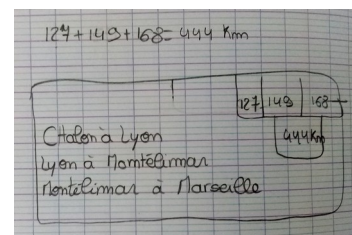 127+149+168= 444 Km
127 149 168
444Km
Chalon à Lyon
Lyon à Montélimar
Montelimar à Marseille